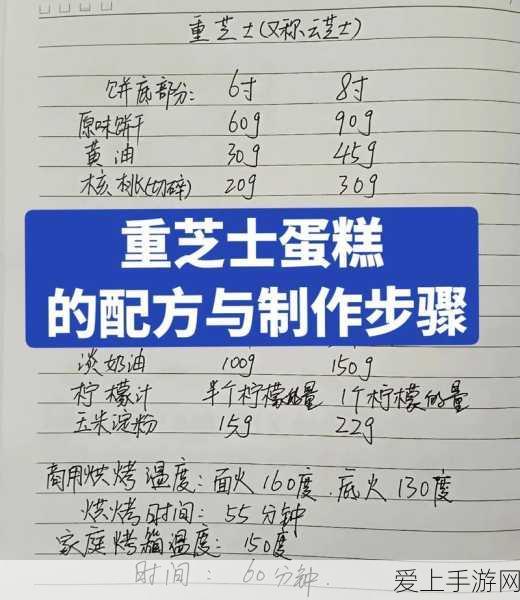 重芝士(又称云芝士)
饼底部分: 6寸 8寸
原味饼干 60g 90g
黄油 30g 45g
核桃(切碎) 20g 30g
重芝士蛋糕
的配方与制作步骤
淡奶油 100g 150g
柠檬汁 半个柠檬的量 1个柠檬的量
玉米淀粉 15g 22g
商用烘烤温度: 面火160度. 底火130度
烘烤时间: 55分钟
家庭烤箱温度: 150度
时间: 60分钟.
爱上手游网